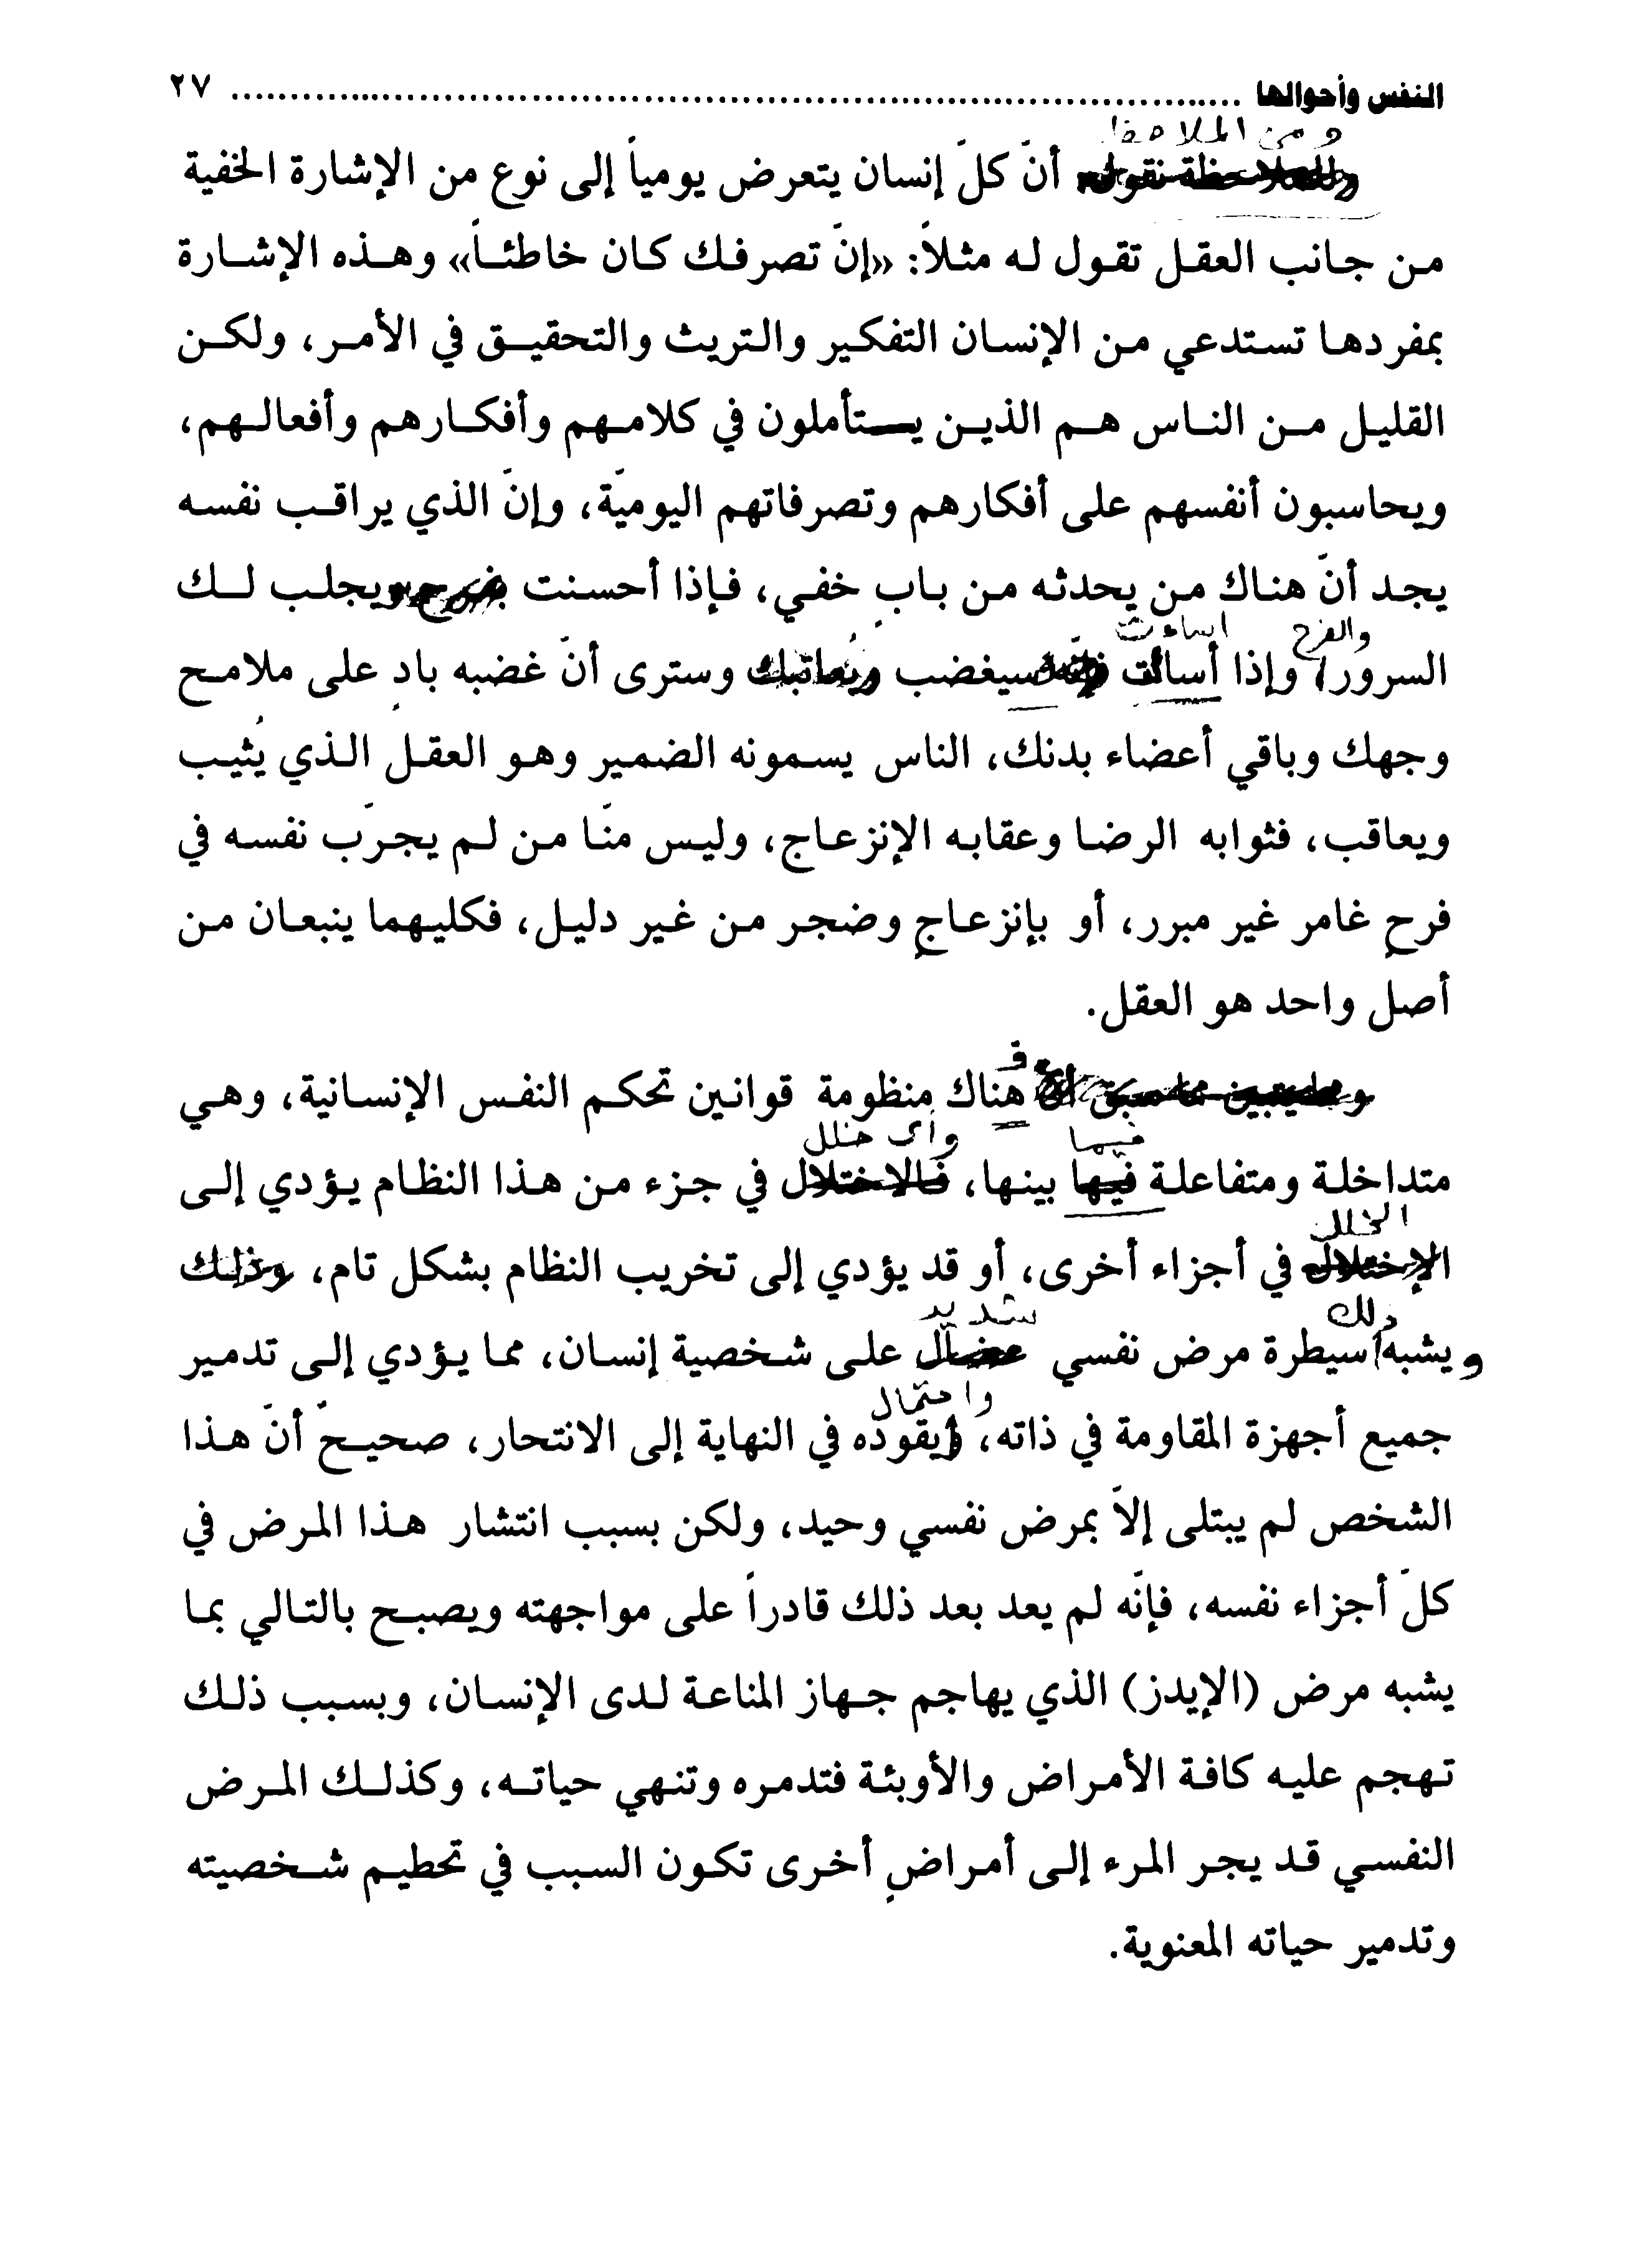 النفس وأحوالها ........................................................................ ٢٧
ومن الملاحظ
وللملاحظة نقول أنّ كلّ إنسان يتعرض يومياً إلى نوع من الإشارة الخفية
من جانب العقل تقول له مثلاً: «إنّ تصرفك كان خاطئاً» وهذه الإشارة
بمفردها تستدعي من الإنسان التفكير والتريث والتحقيق في الأمر، ولكن
القليل من الناس هم الذين يستأملون في كلامهم وأفكارهم وأفعالهم،
ويحاسبون أنفسهم على أفكارهم وتصرفاتهم اليوميّة، وإنّ الذي يراقب نفسه
يجد أنّ هناك من يحدثه من بابٍ خفي، فإذا أحسنت ويجلب لك
والفرح اساءت
السرور وإذا أسأت فإنّه سيغضب ويُعاتبك وسترى أنّ غضبه بادٍ على ملامح
وجهك وباقي أعضاء بدنك، الناس يسمونه الضمير وهو العقل الذي يُثيب
ويعاقب، فثوابه الرضا وعقابه الإنزعاج، وليس منّا من لم يجرّب نفسه في
فرحٍ غامر غير مبرر، أو بإنزعاجٍ وضجر من غير دليل، فكليهما ينبعان من
أصل واحد هو العقل.
فـ
مما سبق أنّ هناك منظومة قوانين تحكم النفس الإنسانية، وهي
فيما وأي خلل
متداخلة ومتفاعلة فيها بينها، فالاختلال في جزء من هذا النظام يؤدي إلى
الخلل
الإختلال في أجزاء أخرى، أو قد يؤدي إلى تخريب النظام بشكل تام، وذلك
ذلك شديد
و يشبه سيطرة مرض نفسي عضال على شخصية إنسان، مما يؤدي إلى تدمير
واحتمال
جميع أجهزة المقاومة في ذاته، ويقوده في النهاية إلى الانتحار، صحيحٌ أنّ هذا
الشخص لم يبتلى إلاّ بمرض نفسي وحيد، ولكن بسبب انتشار هذا المرض في
كلّ أجزاء نفسه، فإنّه لم يعد بعد ذلك قادراً على مواجهته ويصبح بالتالي بما
يشبه مرض (الإيدز) الذي يهاجم جهاز المناعة لدى الإنسان، وبسبب ذلك
تهجم عليه كافة الأمراض والأوبئة فتدمره وتنهي حياته، وكذلك المرض
النفسي قد يجر المرء إلى أمراضٍ أخرى تكون السبب في تحطيم شخصيته
وتدمير حياته المعنوية.